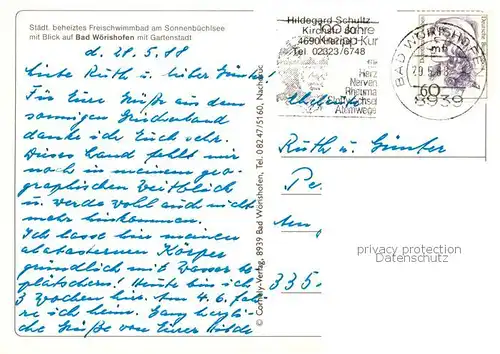 Städt. beheiztes Freischwimmbad am Sonnenbüchlsee
mit Blick auf Bad Wörishofen mit Gartenstadt
d. 28.5.88
Liebe Ruth u. lieber Günter!
Für Eure Grüße aus dem
sonnigen Griechenland
danke ich Euch sehr.
Dieses Land fehlt mir
noch in meinem geo-
graphischen Weitblick
u. werde wohl auch nicht
mehr hinkommen.
Ich lasse hier meinen
alabasternen Körper
gründlich mit Wasser be-
plätschern! Heute bin ich
3 Wochen hier. Am 4.6. fah-
re ich heim. Ganz herzli-
che Grüße von Eurer Hilde
© Cornely-Verlag, 8939 Bad Wörishofen, Tel. 08247/5160, Nachdr.
Hildegard Schultz
Kirchstr.
4690 Herne
Tel 02323/6748
Jahre
Kneipp-Kur
Herz
Nerven
Rheuma
Stoffwechsel
Atemwege
BAD WÖRISHOFEN
8939
60
Ruth u. Günter
Pe
Am
335
privacy protection
Datenschutz